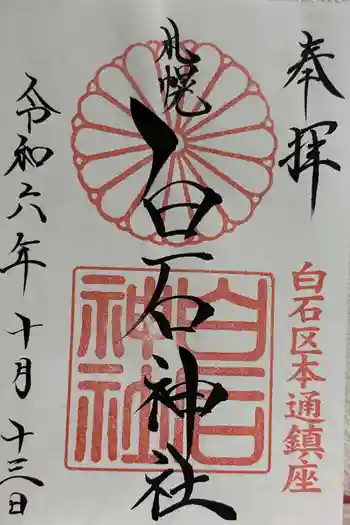 奉拝
白石区本通鎮座
札幌
白石神社
白石神社
令和六年十月十三日